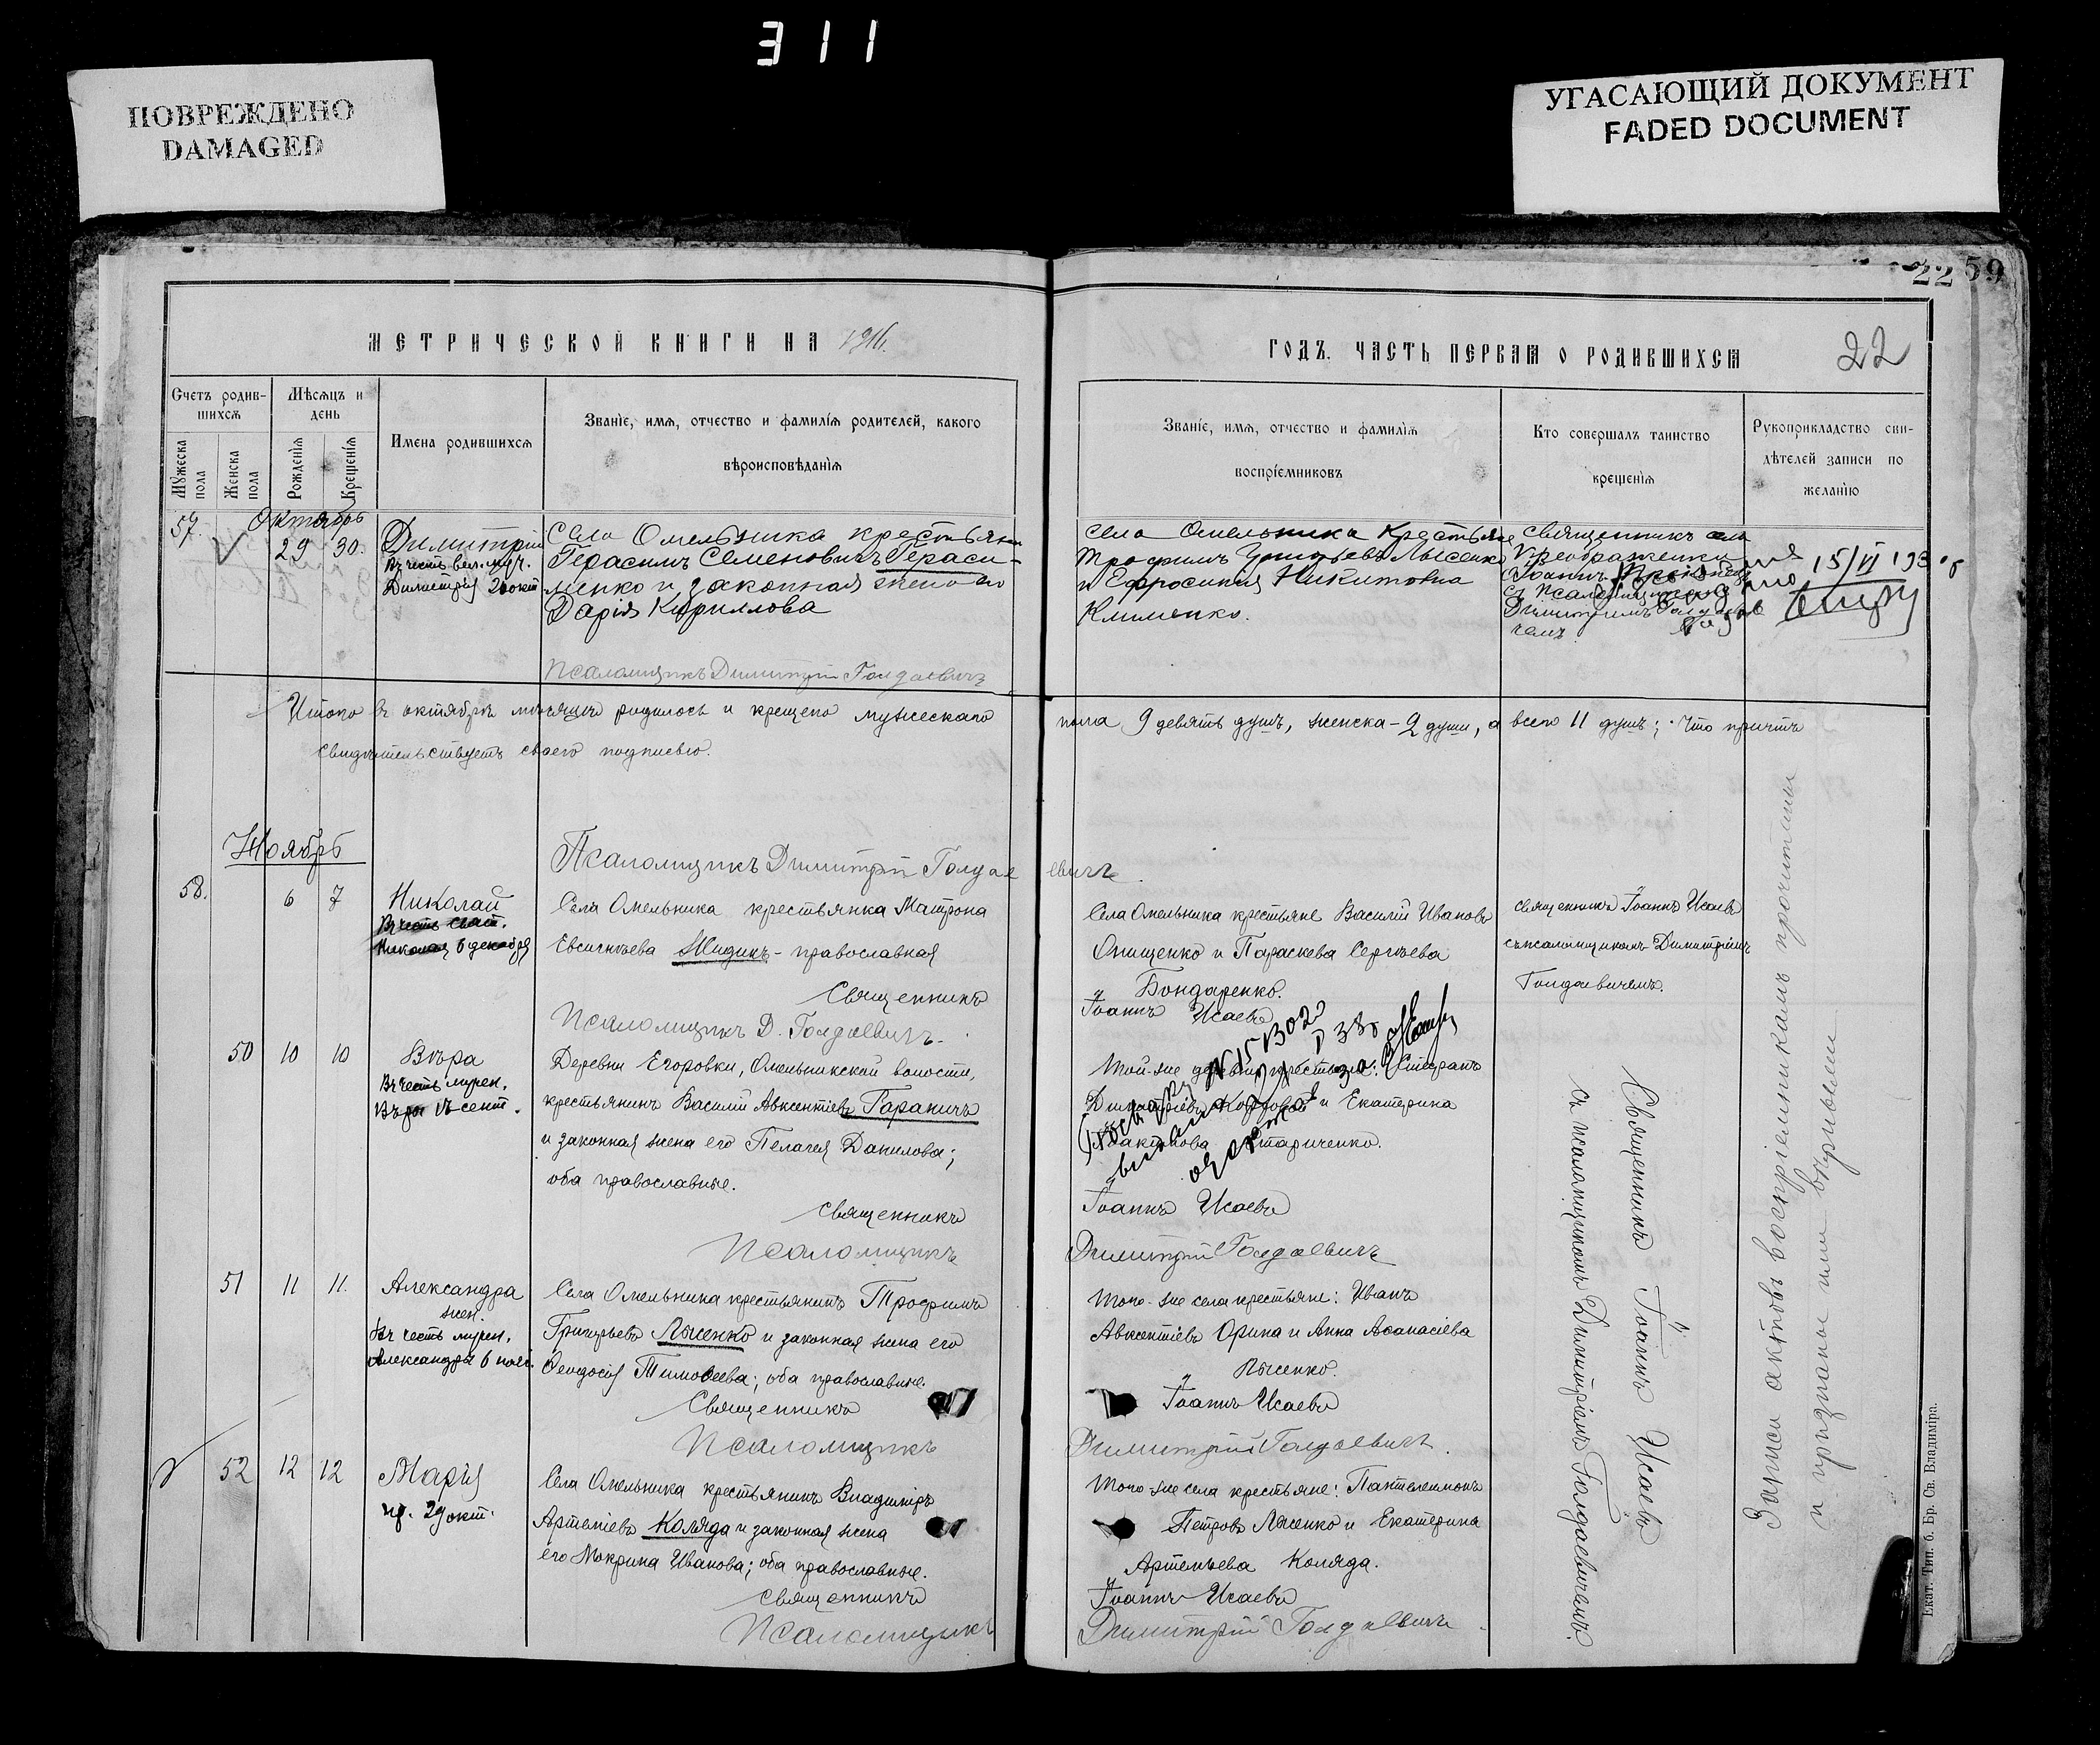 311
ПОВРЕЖДЕНО
DAMAGED
УГАСАЮЩИЙ ДОКУМЕНТ
FADED DOCUMENT
22 59
МЕТРИЧЕСКОЙ КНИГИ НА 1916.
Счетъ родив-
шихся
Мѣсяцъ и
день
Мужеска
пола
Женска
пола
Рожденія
Крещенія
Имена родившихся
Званіе, имя, отчество и фамилія родителей, какого
вѣроисповѣданія
Октябрь
57. 29 30.
Димитрій
Въ честь вел. муч.
Димитрія 26 окт
Села Омельника крестьянин
Герасимъ Семеновичъ Гераси-
менко и законная жена его
Дарія Кириллова
Псаломщикъ Димитрій Голдаевичъ
Итого въ октябрѣ мѣсяцѣ родилось и крещено мужескаго
свидѣтельствуетъ своею подписью.
Ноябрь
Псаломщикъ Димитрій Голдае
58. 6 7
Николай
Въ честь свят.
Николая 6 декабря
Села Омельника крестьянка Матрона
Евсигнѣева Жидикъ - православная
Священникъ
Псаломщикъ Д. Голдаевичъ.
50 10 10
Вѣра
Въ честь мучен.
Вѣры 17 сент.
Деревни Егоровки, Омельникской волости,
крестьянинъ Василій Авксентіевъ Гараничъ
и законная жена его Пелагея Данилова;
оба православные.
Священникъ
Псаломщикъ
51 11 11.
Александра
жен.
Въ честь мучен.
Александры 6 нояб.
Села Омельника крестьянинъ Трофимъ
Григорьевъ Лысенко и законная жена его
Ѳеодосія Тимоѳеева; оба православные.
Священникъ
Псаломщикъ
52 12 12
Марія
пр. 29 окт.
Села Омельника крестьянинъ Владиміръ
Артеміевъ Коляда и законная жена
его Мокрина Иванова; оба православные.
Священникъ
Псаломщикъ
ГОДЪ. ЧАСТЬ ПЕРВАЯ О РОДИВШИХСЯ
22
Званіе, имя, отчество и фамилія
воспріемниковъ
Кто совершалъ таинство
крещенія
Рукоприкладство сви-
дѣтелей записи по
желанію
Села Омельника Крестьяне
Трофимъ Григорьевъ Лысенко
и Ефросинія Никитовна
Клименко.
Священникъ села
Преображенки
Іоаннъ
съ псаломщикомъ
Димитріемъ Голдаеви
чемъ
15/VI 193
пола 9 девять душъ, женска - 2 души, а всего 11 душъ; что причтъ
евичъ.
Села Омельника крестьяне Василій Ивановъ
Онищенко и Параскева Сергѣева
Бондаренко.
Іоаннъ Исаевъ
Священникъ Іоаннъ Исаевъ
съ псаломщикомъ Димитріемъ
Голдаевичемъ.
Той-же деревни крестьяне: Стефанъ
Димитріевъ и Екатерина
Стариченко.
Іоаннъ Исаевъ
Димитрій Голдаевичъ
Того-же села крестьяне: Иванъ
Авксентіевъ Орина и Анна Аѳанасіева
Лысенко.
Іоаннъ Исаевъ
Димитрій Голдаевичъ.
Того-же села крестьяне: Пантелеимонъ
Петровъ Лысенко и Екатерина
Артемьева Коляда.
Іоаннъ Исаевъ
Димитрій Голдаевичъ
Священникъ Іоаннъ Исаевъ
съ псаломщикомъ Димитріемъ Голдаевичемъ.
Записи актовъ воспріемникамъ прочитаны
и признаны ими вѣрными
Екат. Тип. б. Бр. Св. Владиміра.